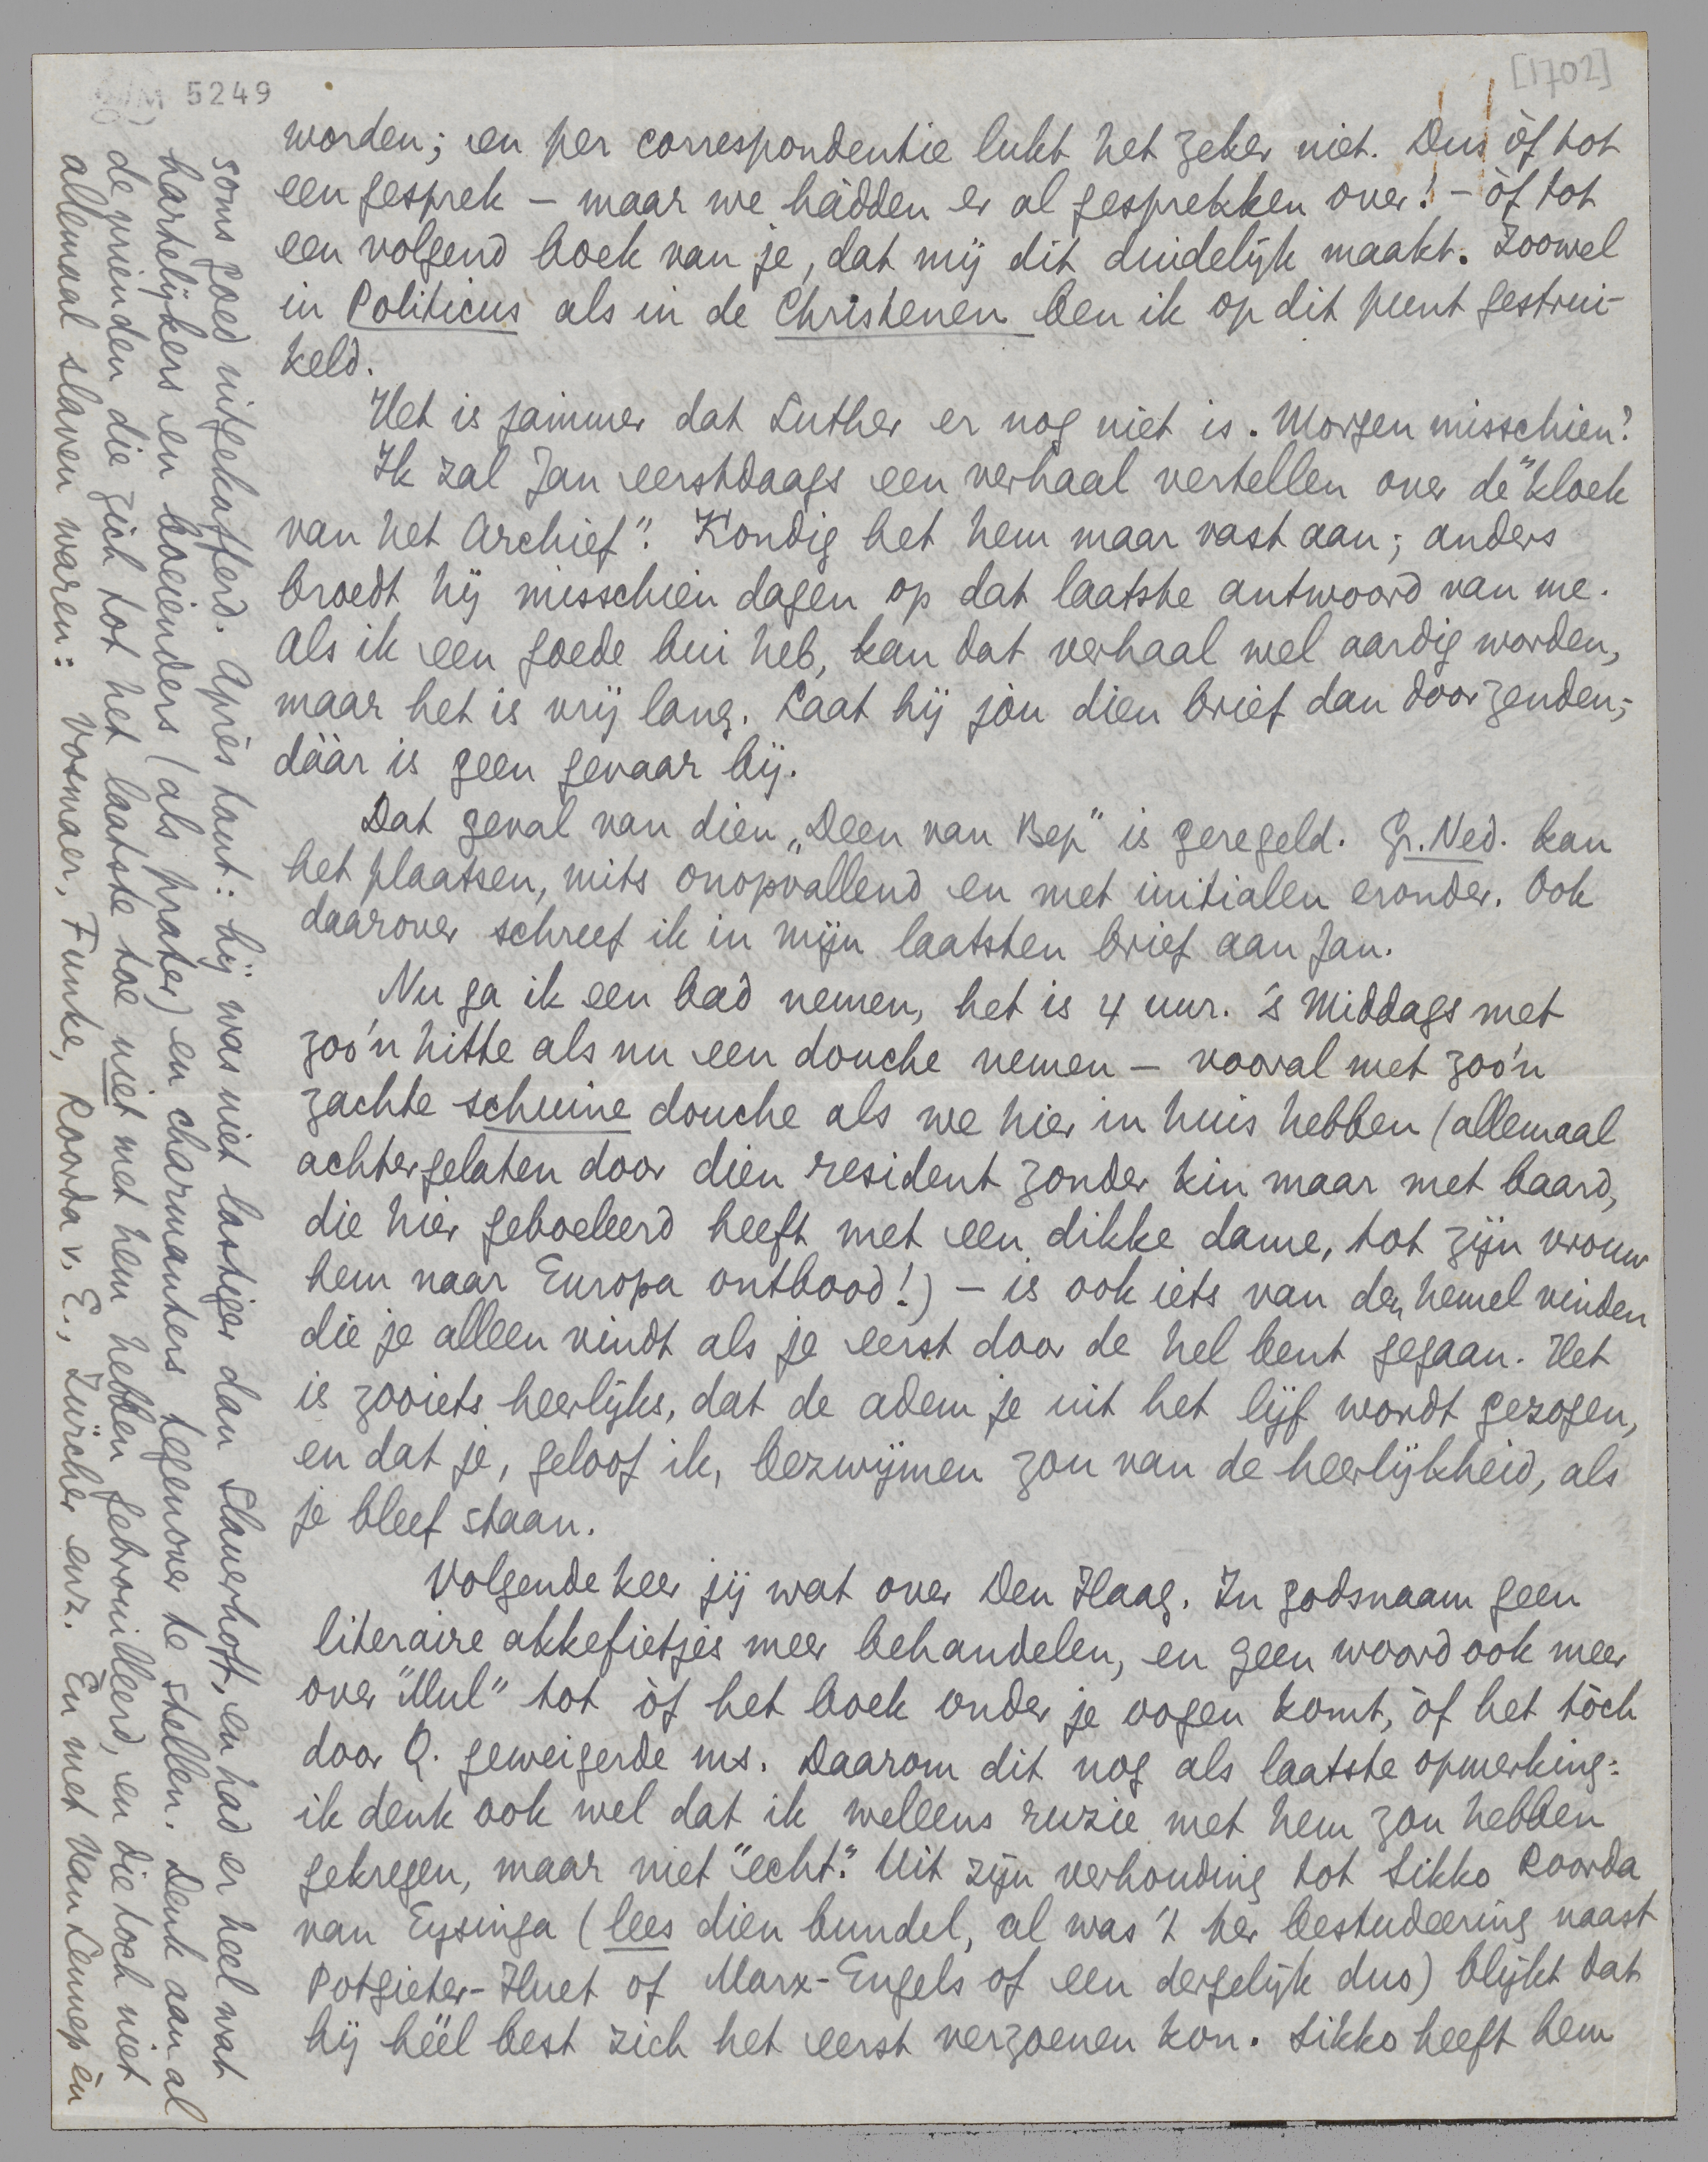 5249
[1702]
worden; en per correspondentie lukt het zeker niet. Dus òf tot
een gesprek – maar we hàdden er al gesprekken over! – òf tot
een volgend boek van je, dat mij dit duidelijk maakt. Zoowel
in Politicus als in de Christenen ben ik op dit punt gestrui-
keld.
Het is jammer dat Luther er nog niet is. Morgen misschien?
Ik zal Jan eerstdaags een verhaal vertellen over de "kloek
van het Archief". Kondig het hem maar vast aan; anders
broedt hij misschien dagen op dat laatste antwoord van me.
Als ik een goede bui heb, kan dat verhaal wel aardig worden,
maar het is vrij lang. Laat hij jòu dien brief dan doorzenden;
dáár is geen gevaar bij.
Dat geval van dien „Deen van Bep" is geregeld. Gr. Ned. kan
het plaatsen, mits onopvallend en met initialen eronder. Ook
daarover schreef ik in mijn laatsten brief aan Jan.
Nu ga ik een bad nemen, het is 4 uur. 's Middags met
zoo'n hitte als nu een douche nemen – vooral met zoo'n
zachte schuine douche als we hier in huis hebben (allemaal
achtergelaten door dien resident zonder kin maar met baard,
die hier geboeleerd heeft met een dikke dame, tot zijn vrouw
hem naar Europa ontbood!) – is ook iets van den hemel vinden
die je alleen vindt als je eerst door de hel bent gegaan. Het
is zooiets heerlijks, dat de adem je uit het lijf wordt gezogen,
en dat je, geloof ik, bezwijmen zou van de heerlijkheid, als
je bleef staan.
Volgende keer jij wat over Den Haag. In godsnaam geen
literaire akkefietjes meer behandelen, en geen woord ook meer
over "Mul" tot òf het boek onder je oogen komt, òf het tòch
door Q. geweigerde ms. Daarom dit nog als laatste opmerking:
ik denk ook wel dat ik weleens ruzie met hem zou hebben
gekregen, maar niet "echt". Uit zijn verhouding tot Sikko Roorda
van Eysinga (lees dien bundel, al was 't ter bestudeering naast
Potgieter-Huet of Marx-Engels of een dergelijk duo) blijkt dat
hij héél best zich het eerst verzoenen kon. Sikko heeft hem
soms goed uitgekafferd. Après tout: hij was niet lastiger dan Slauerhoff, en had er heel wat
hartelijkers en boeienders (als prater) en charmanters tegenover te stellen. Denk aan al
de vrienden die zich tot het laatste toe niet met hem hebben gebrouilleerd, en die toch niet
allemaal slaven waren: Vosmaer, Funke, Roorda v. E., Zürcher enz. En met Van Lennep èn